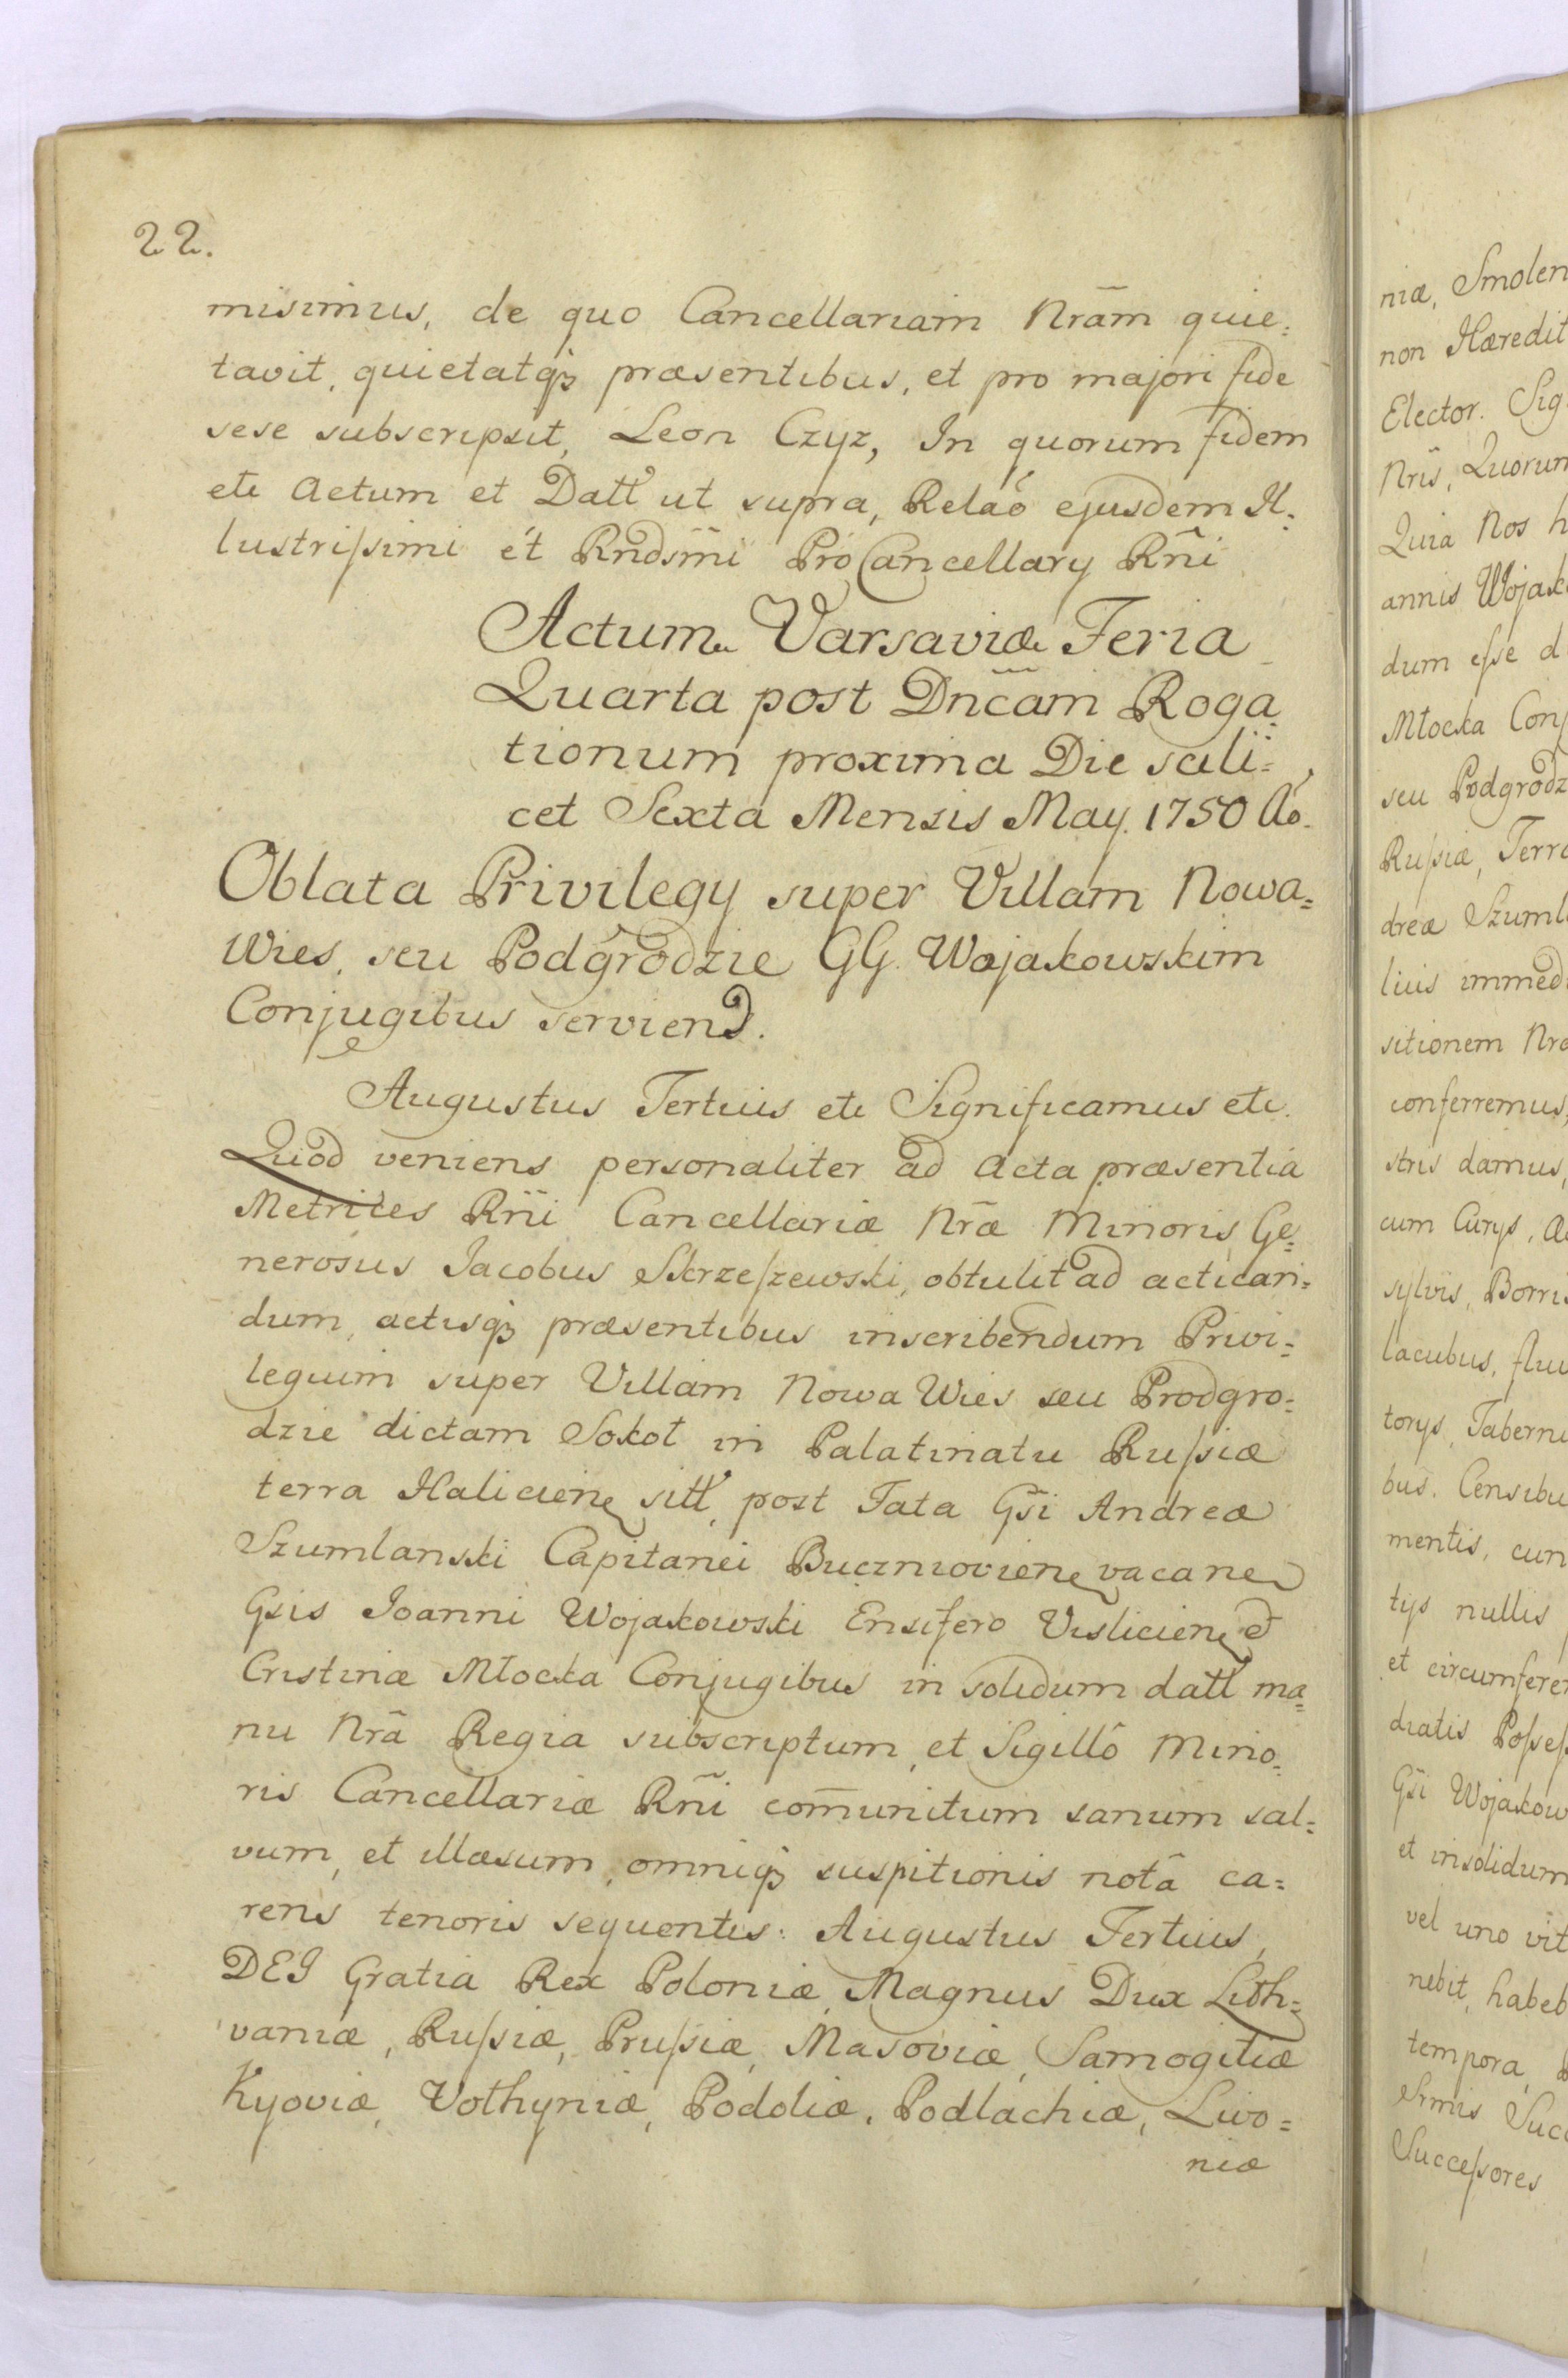 22.
misimus, de quo Cancellariam Nrãm quie=
tavit, quietatqȝ præsentibus, et pro majori fide
sese subscripsit, Leon Czyz, In quorum fidem
etc Actum et Datt ut supra, Relaõ ejusdem Il=
lustrissimi et Rndsm̃i ProCancellary Rñi
Actum Varsaviæ Feria
Quarta post Dnc̃am Roga=
tionum proxima Die scili=
cet Sexta Mensis May. 1750 Aõ.
Oblata Privilegy super Villam Nowa=
Wies, seu Podgrodzie GG. Wojakowskim
Conjugibus serviend.
Augustus Tertius etc Significamus etc.
Quod veniens personaliter ad Acta præsentia
Metrices Rñi Cancellariæ Nræ Minoris Ge=
nerosus Jacobus Skrzeszewski, obtulit ad actican=
dum, actisqȝ præsentibus inscribendum Privi=
legium super Villam Nowa Wies seu Prodgro=
dzie dictam Sokoł in Palatinatu Russiæ
terra Halicien sitt, post Fata Gsi Andreæ
Szumlanski Capitanei Buczniovien vacanem
Gsis Joanni Wojakowski Ensifero Vislicien et
Cristinæ Młocka Conjugibus in solidum datt ma=
nu Nrã Regia subscriptum, et Sigillô Mino=
ris Cancellariæ Rñi com̃unitum sanum sal=
vum, et illæsum, omniqȝ suspitionis notâ ca=
rens tenoris sequentis: Augustus Tertius,
DEI Gratia Rex Poloniæ, Magnus Dux Lith=
vaniæ, Russiæ, Prussiæ, Masoviæ, Samogitiæ
Kyoviæ, Volhyniæ, Podoliæ, Podlachiæ, Livo=
niæ
niæ, Smolen
non Hæredit
Elector. Sig
Nris, Quorum
Quia Nos h
annis Wojak
dum esse d
Młocka Conj
seu Podgrodz
Russiæ, Terra
dreæ Szuml
lius immed
sitionem Nra
conferremus,
stris damus,
cum Curys,
sylvis, Borri
lacubus, flu
torys, Taberni
bus. Censibu
mentis, cun
tys nullis
et circumfere
diatis Posses
Gsi Wojakow
et insolidum
vel uno vit
nebit, habeb
tempora,
Simis Succ
Successores